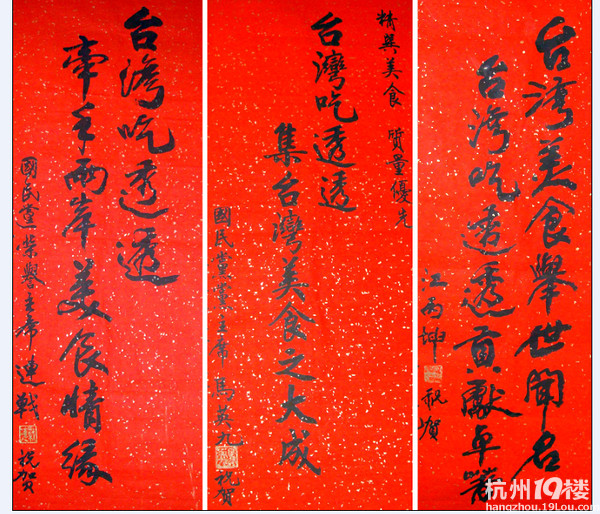 台灣美食舉世聞名
台灣吃透透貢獻卓著
江丙坤 祝賀
精美食 質量優先
台灣吃透透
集台灣美食之大成
國民黨黨主席馬英九 祝賀
台灣吃透透
牽手兩岸美食情緣
國民黨榮譽主席連戰 祝賀
杭州19楼
hangzhou.19Lou.com